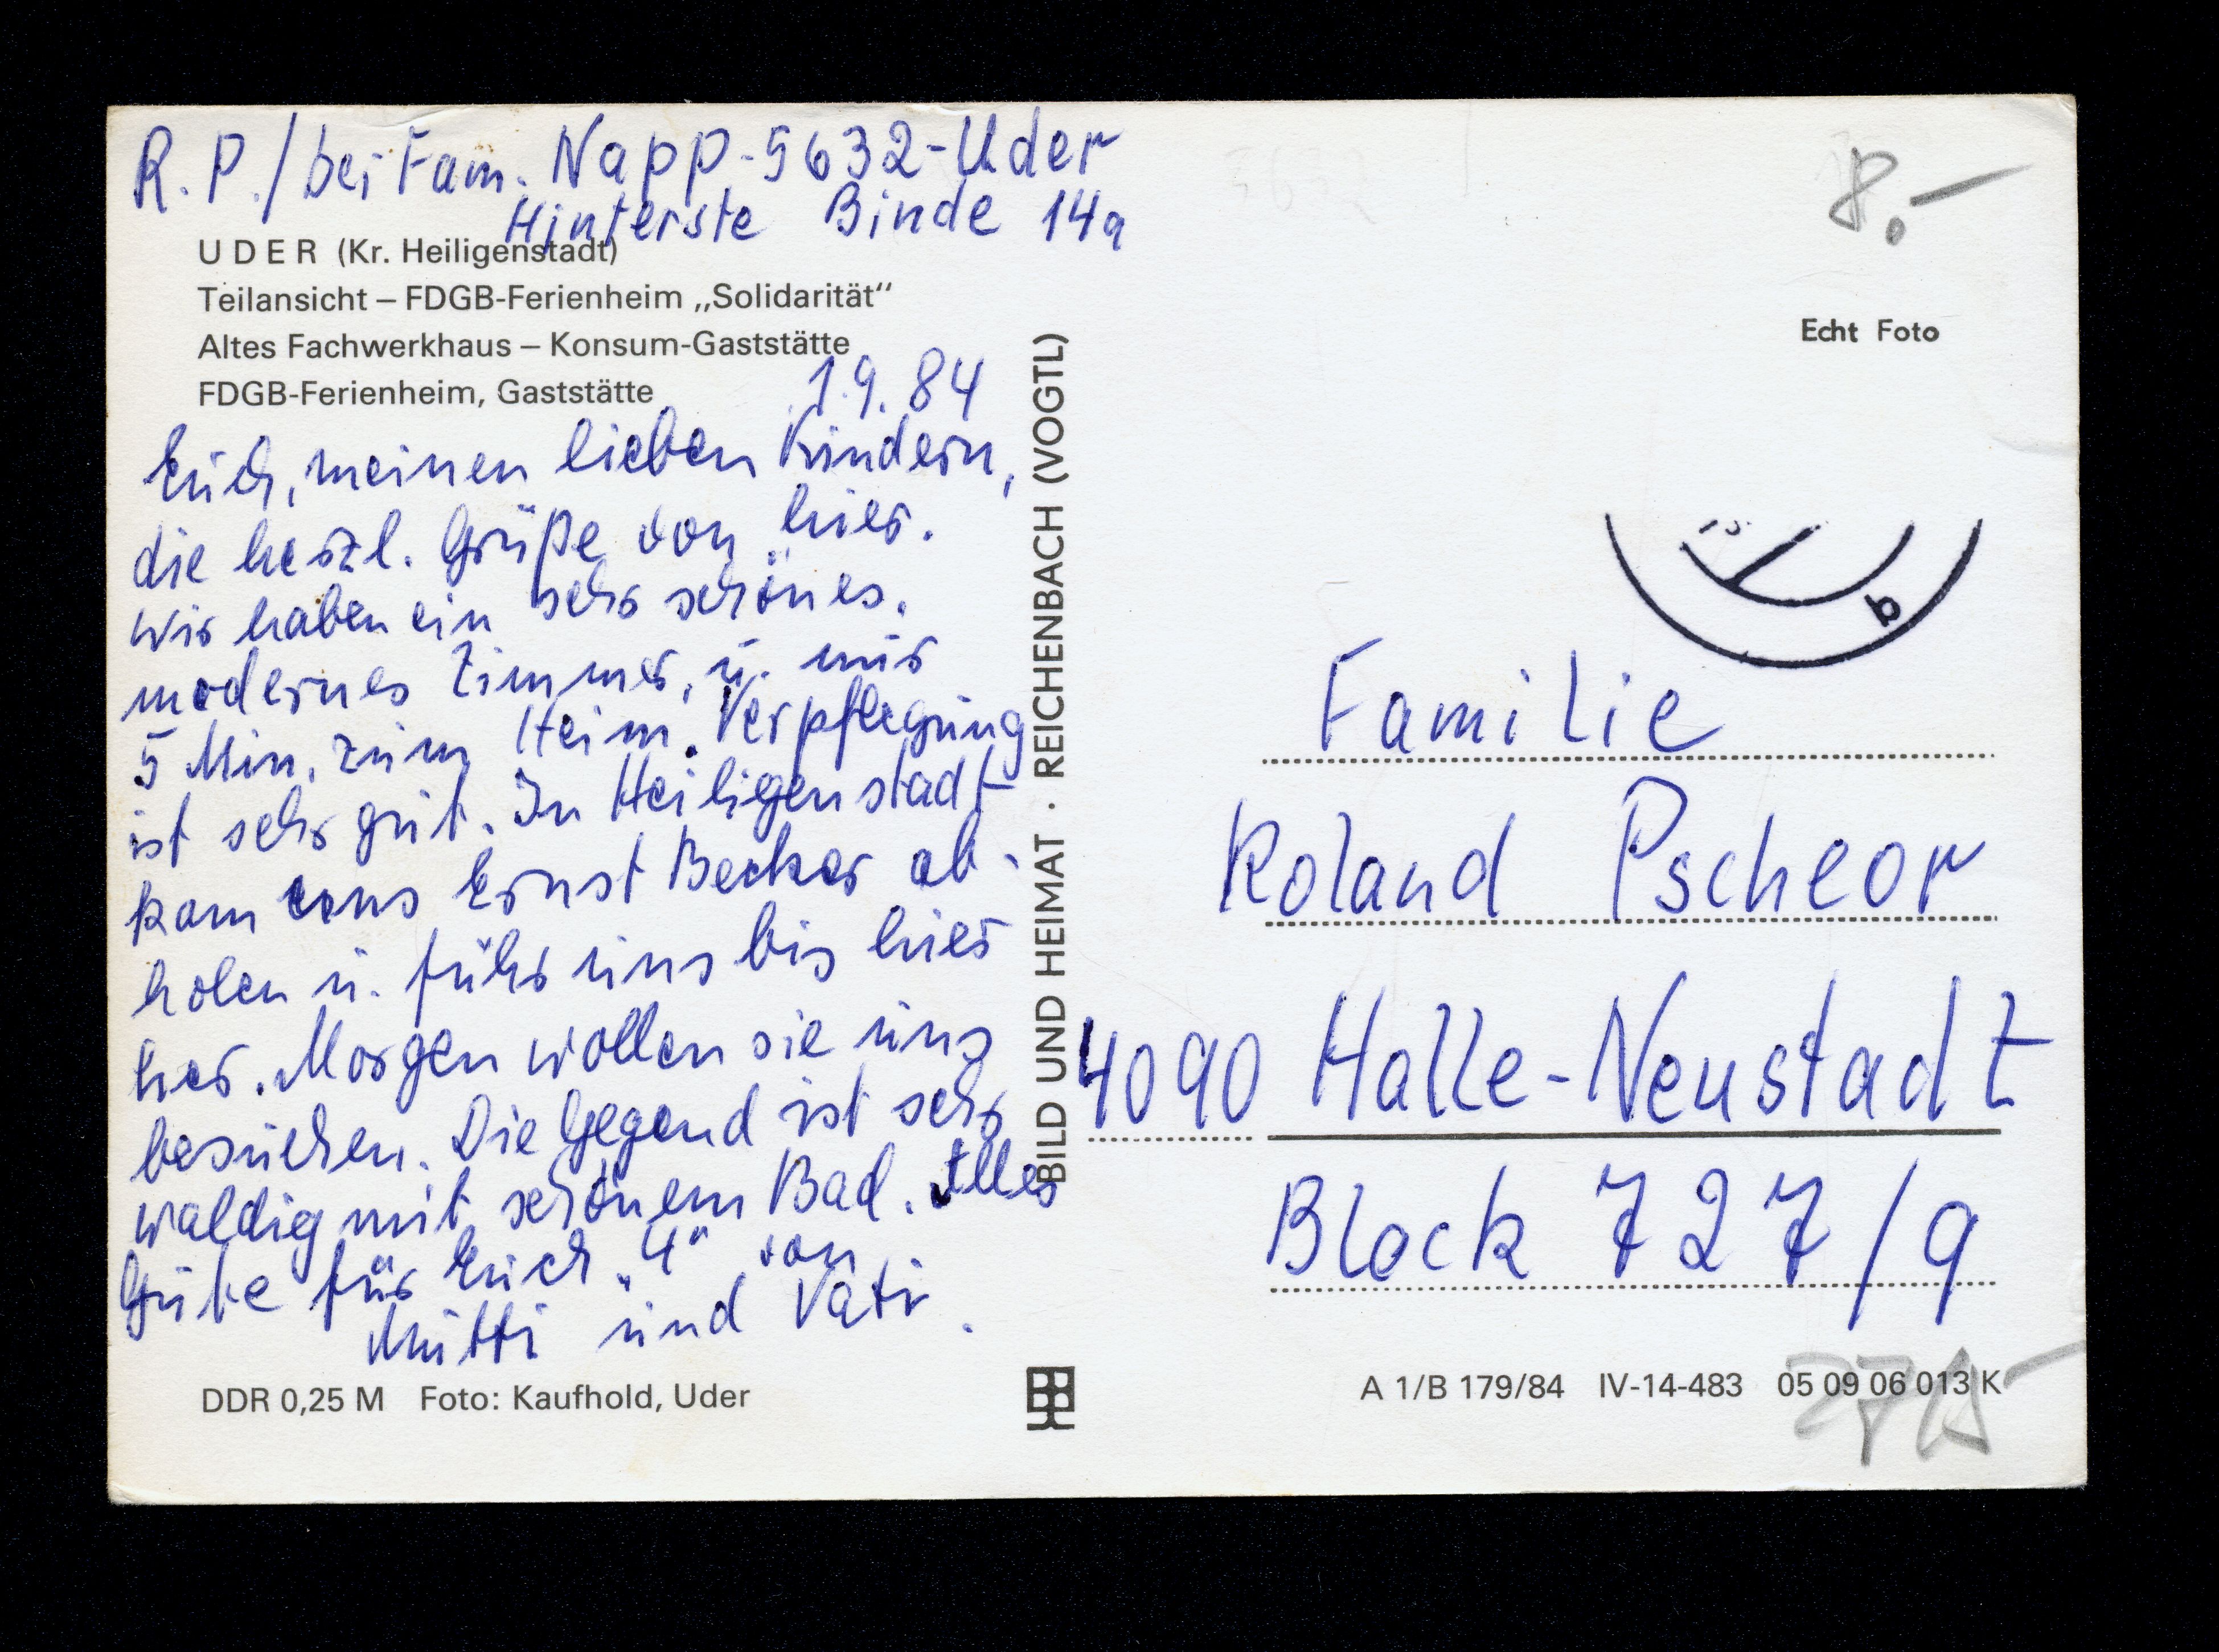 R. P. / bei Fam. Napp - 5632 - Uder
Hinterste Binde 14a
UDER (Kr. Heiligenstadt)
Teilansicht – FDGB-Ferienheim „Solidarität“
Altes Fachwerkhaus – Konsum-Gaststätte
FDGB-Ferienheim, Gaststätte
1.9.84
Euch, meinen lieben Kindern,
die herzl. Grüße von hier.
Wir haben ein sehr schönes,
modernes Zimmer, u. nur
5 Min. zum Heim. Verpflegung
ist sehr gut. In Heiligenstadt
kam uns Ernst Becker ab-
holen u. fuhr uns bis hier
her. Morgen wollen sie uns
besuchen. Die Gegend ist sehr
waldig mit schönem Bad. Alles
Gute für Euch „4“ von
Mutti und Vati.
DDR 0,25 M Foto: Kaufhold, Uder
BILD UND HEIMAT · REICHENBACH (VOGTL)
8.–
Echt Foto
b
Familie
Roland Pscheor
4090 Halle-Neustadt
Block 727/9
A 1/B 179/84 IV-14-483 05 09 06 013 K